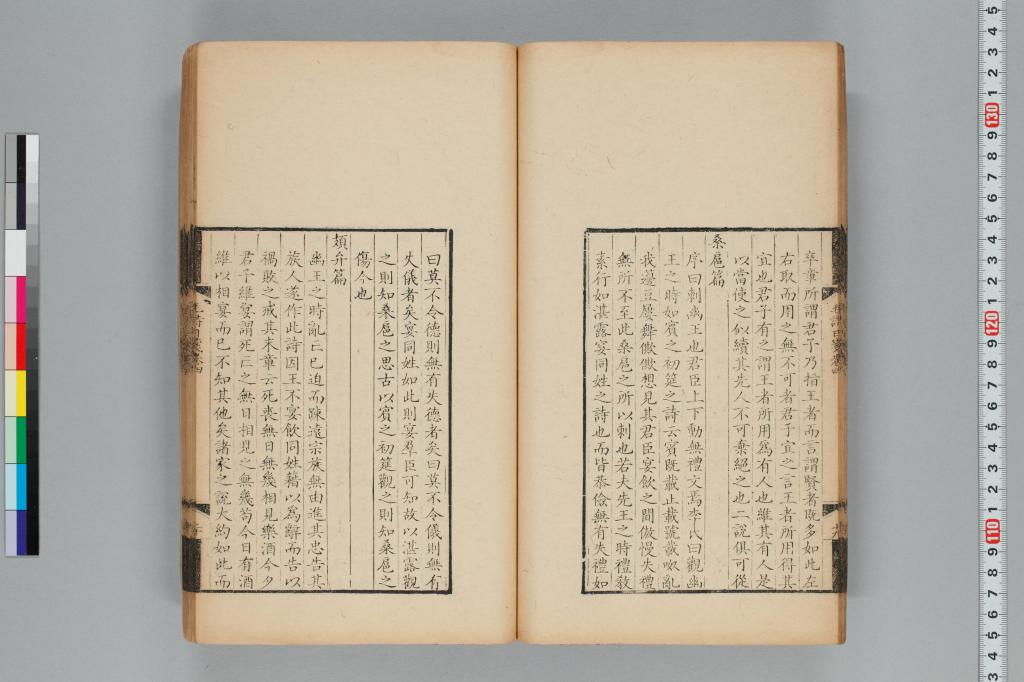 卒章所謂君子乃指王者而言謂賢者既多如此左
右取而用之無不可者君子宜之言王者所用得其
宜也君子有之謂王者所用爲有人也維其有人是
以當使之似續其先人不可棄絕之也二說俱可從
桑扈篇
序曰刺幽王也君臣上下動無禮文焉李氏曰觀幽
王之時如賓之初筵之詩云賓既載止載號載呶亂
我籩豆屢舞僛僛想見其君臣宴飲之間傲慢失禮
無所不至此桑扈之所以刺也若夫先王之時禮教
素行如湛露宴同姓之詩也而皆恭儉無有失禮如
曰莫不令德則無有失德者矣曰莫不令儀則無有
失儀者矣宴同姓如此則宴羣臣可知故以湛露觀
之則知桑扈之思古以賓之初筵觀之則知桑扈之
傷今也
頍弁篇
幽王之時亂亡已迫而踈遠宗族無由進其忠告其
族人遂作此詩因王不宴飲同姓藉以爲辭而告以
禍敗之戒其末章云死喪無日無幾相見樂酒今夕
君子維宴謂死亡之無日相見之無幾茍今日有酒
維以相宴而已不知其他矣諸家之說大約如此而